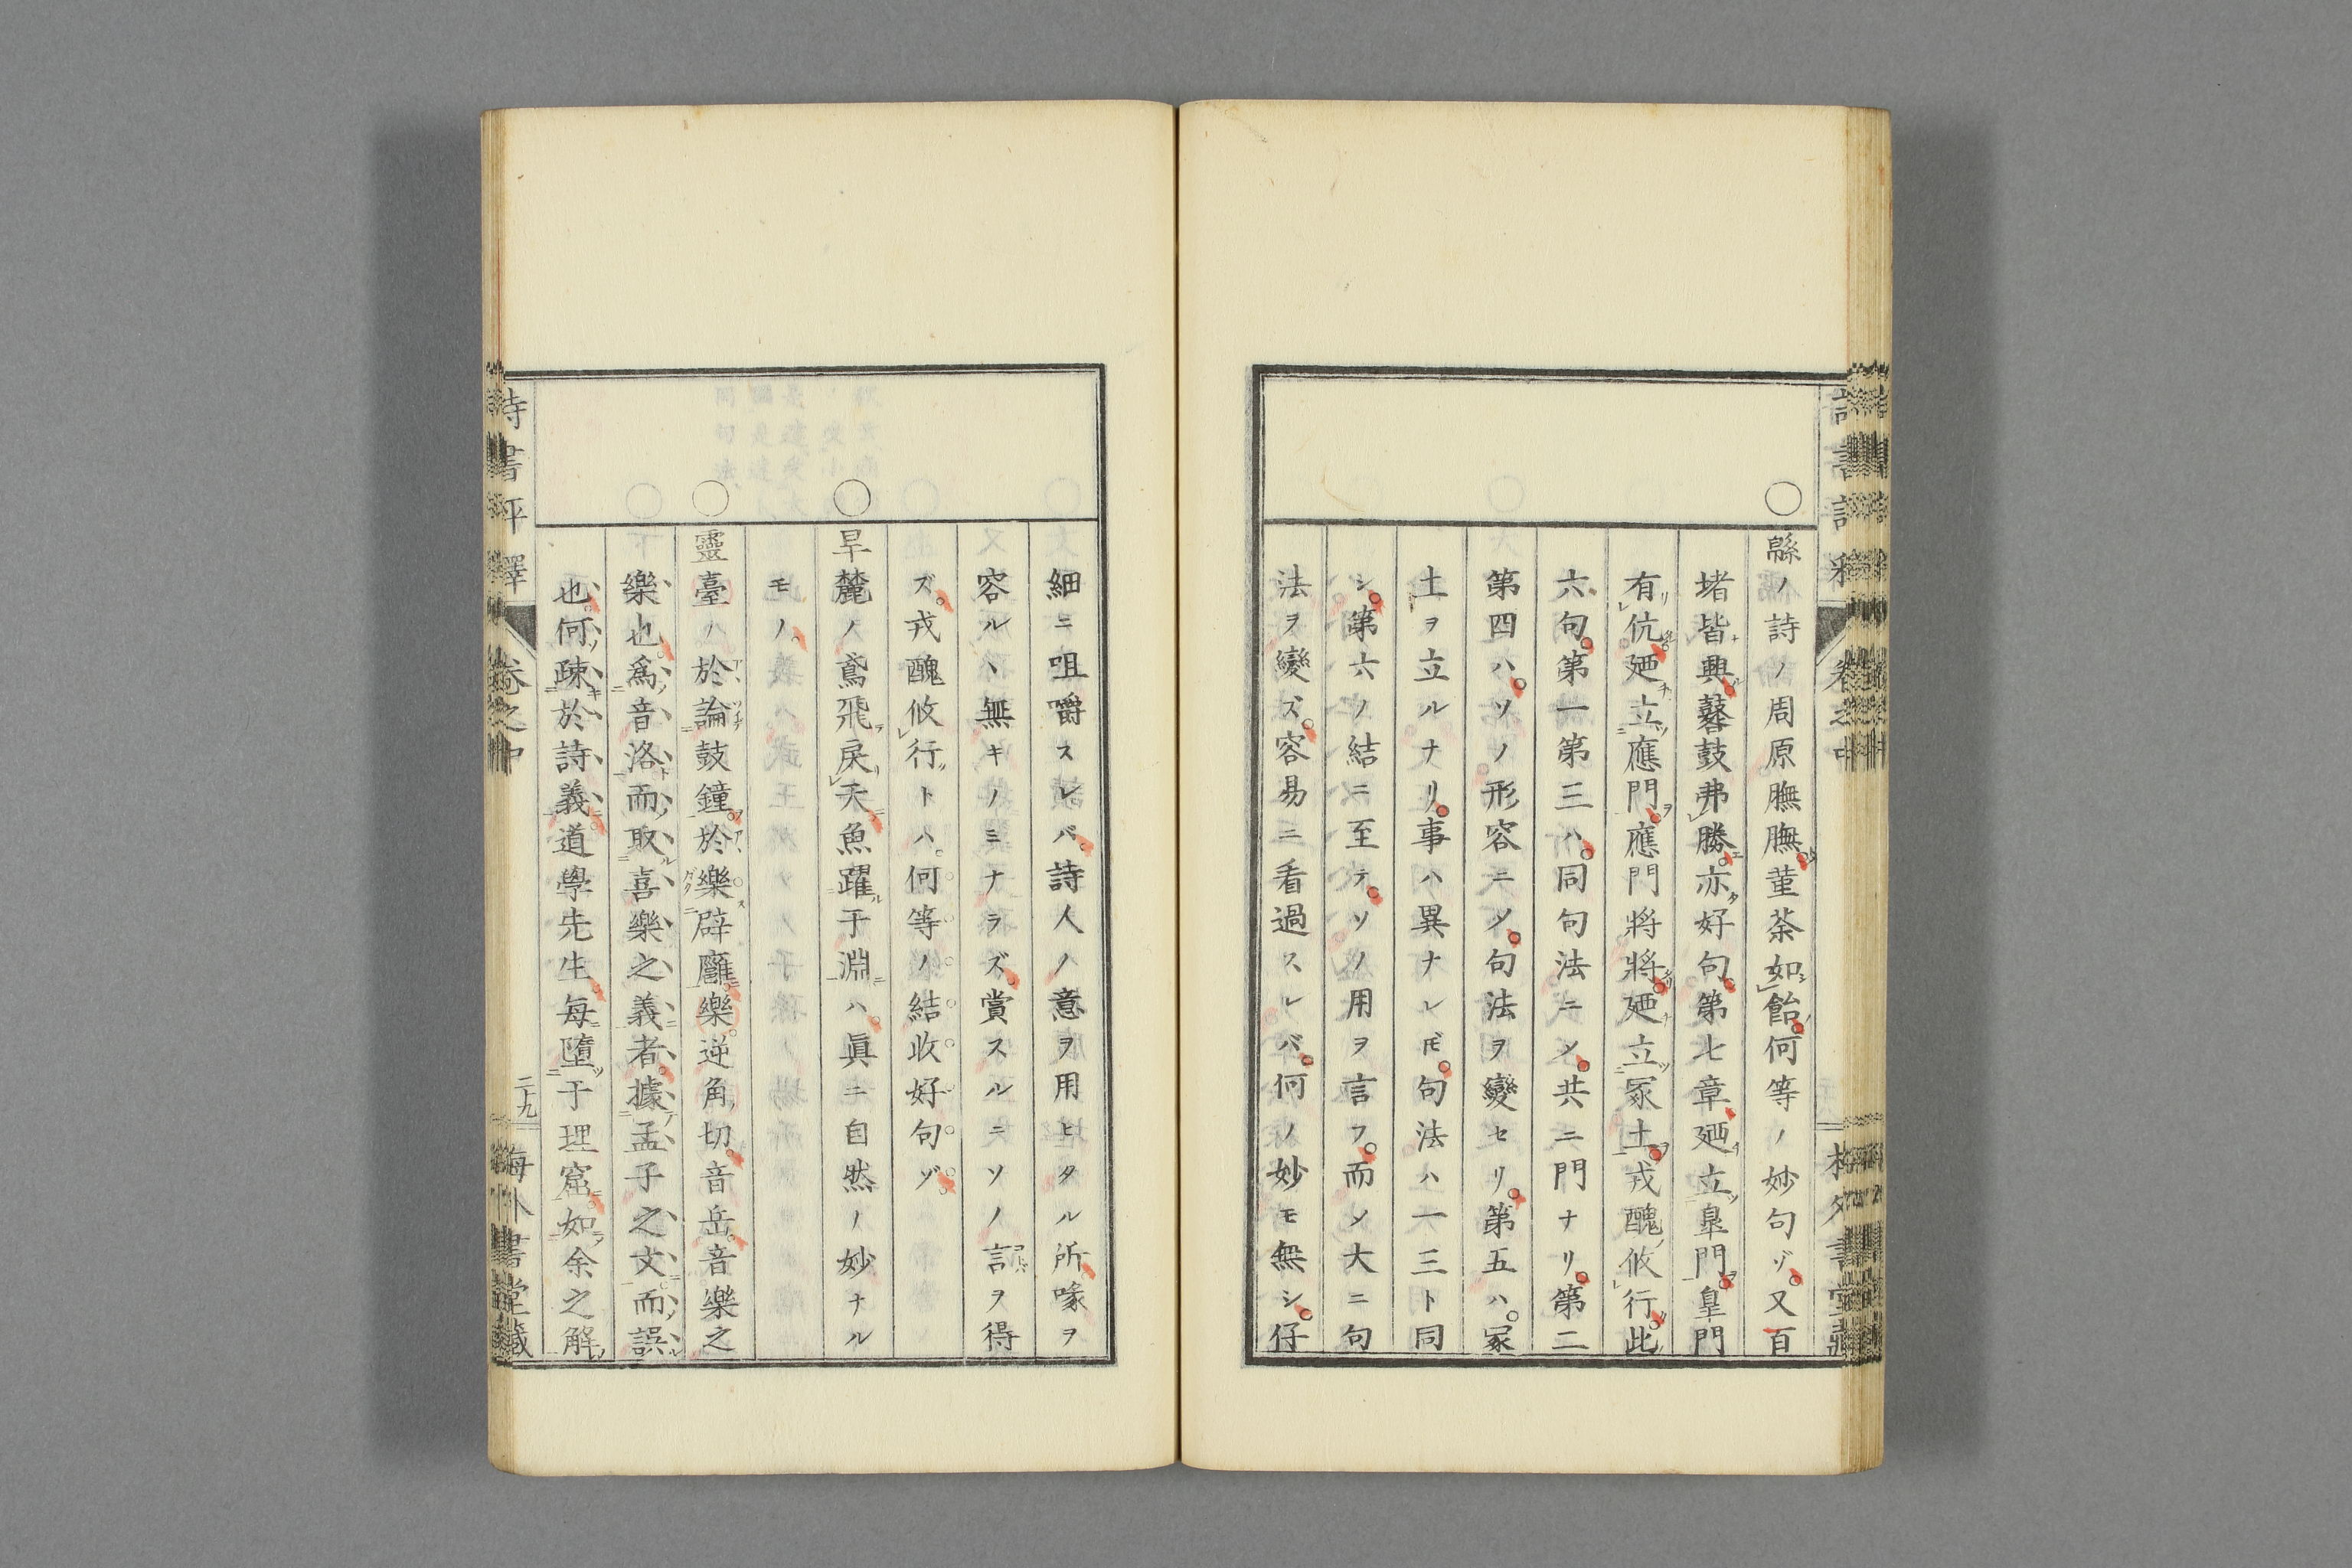 緜ノ詩ノ周原膴膴菫荼如飴何等ノ妙句ゾ又百
堵皆興鼛鼓弗勝亦好句第七章廼立皐門皐門
有伉廼立應門應門將將廼立冢土戎醜攸行此
六句第一第三ハ同句法ニメ共ニ門ナリ第二
第四ハソノ形容ニメ句法ヲ變セリ第五ハ冢
土ヲ立ルナリ事ハ異ナレ𪜈句法ハ一三ト同
シ第六ノ結ニ至テソノ用ヲ言フ而メ大ニ句
法ヲ變ズ容易ニ看過スレバ何ノ妙モ無シ仔
細ニ咀嚼スレバ詩人ノ意ヲ用ヒタル所喙ヲ
容ルヽ無キノミナラズ賞スルニソノ言ヲ得
ズ戎醜攸行トハ何等ノ結收好句ゾ
旱麓ノ鳶飛戾天魚躍于淵ハ眞ニ自然ノ妙ナル
モノ
靈臺ノ於論鼓鐘於樂辟廱樂逆角切音岳音樂之
樂也爲音洛而取喜樂之義者據孟子之文而誤
也何疎於詩義道學先生每墮于理窟如余之解
詩書評釋
卷之中
二十九
書堂藏